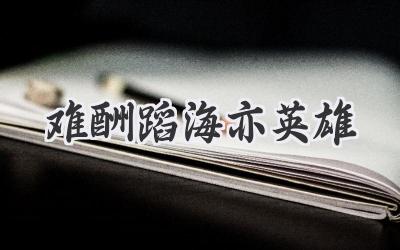 难酬蹈海亦英雄